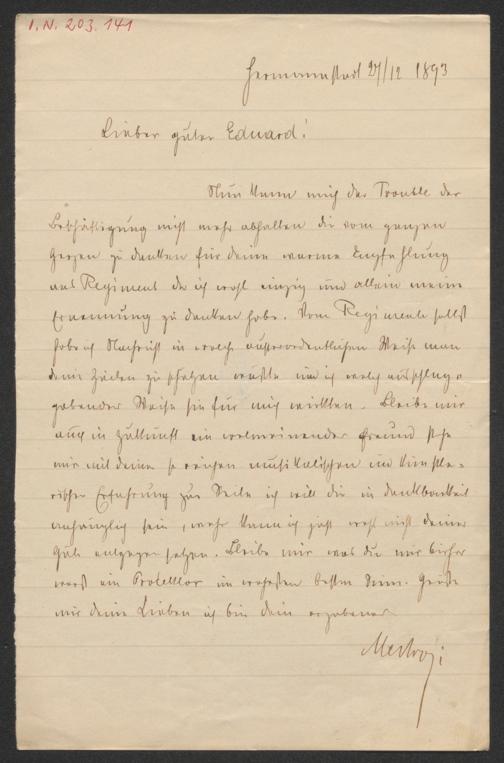 I.N. 203.141
Hermannstadt 27/12 1893
Lieber guter Eduard!
Nun kann mich der Trouble der
Beschäftigung nicht mehr abhalten dir vom ganzen
Herzen zu danken für deine warme Empfehlung
ans Regiment der ich wohl einzig und allein meine
Ernennung zu danken habe. Vom Regimente selbst
habe ich Nachricht in welch außerordentlicher Weise man
deine Zeilen zu schätzen wußte und in welch ausschlag-
gebender Weise sie für mich wirkten. Bleibe mir
auch in Zukunft ein wolmeinender Freund stehe
mir mit deiner so reichen musikalischen und künstle-
rischen Erfahrung zur Seite ich will dir in Dankbarkeit
anhänglich sein, mehr kann ich jetzt wohl nicht deiner
Güte entgegen setzen. Bleibe mir was du mir bisher
warst ein Protektor im wahrsten besten Sinn. Grüße
mir deine Lieben ich bin dein ergebener